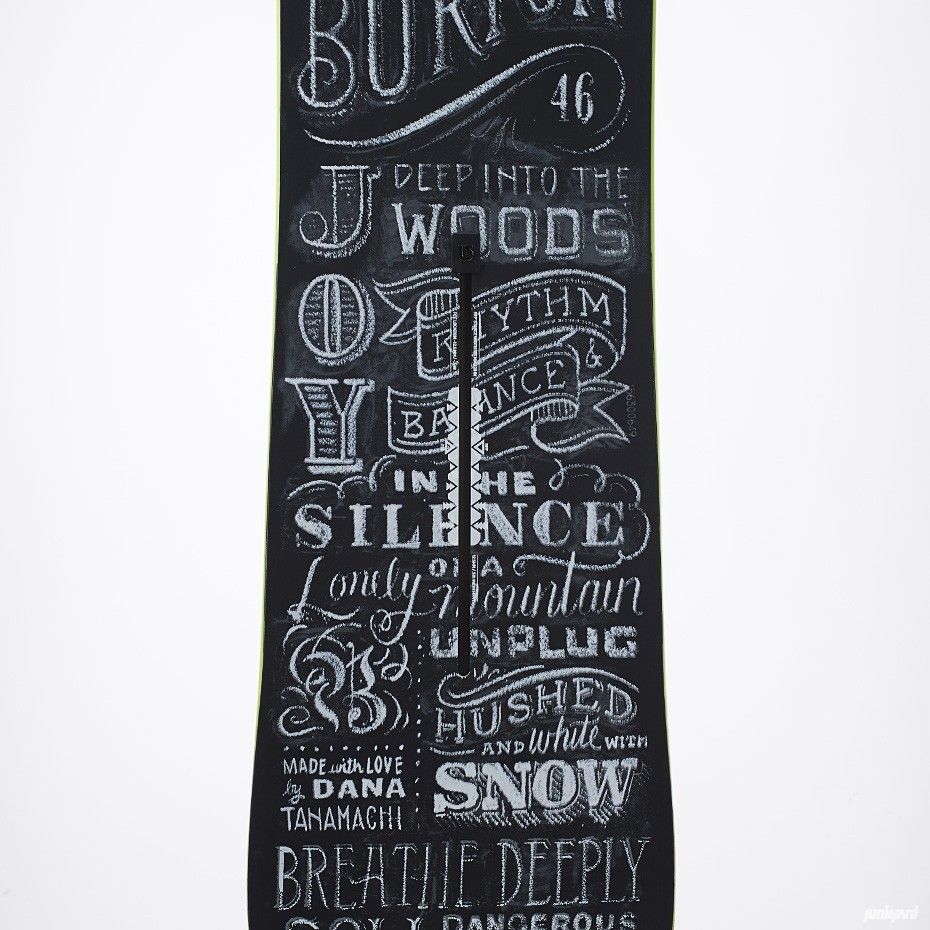 BURTON
46
JOY
DEEP INTO THE
WOODS
RHYTHM
&
BALANCE
IN THE
SILENCE
OF A
Lonely Mountain
UNPLUG
HUSHED
AND white WITH
SNOW
MADE with LOVE
by DANA
TANAMACHI
BREATHE DEEPLY
DANGEROUS
junkyard